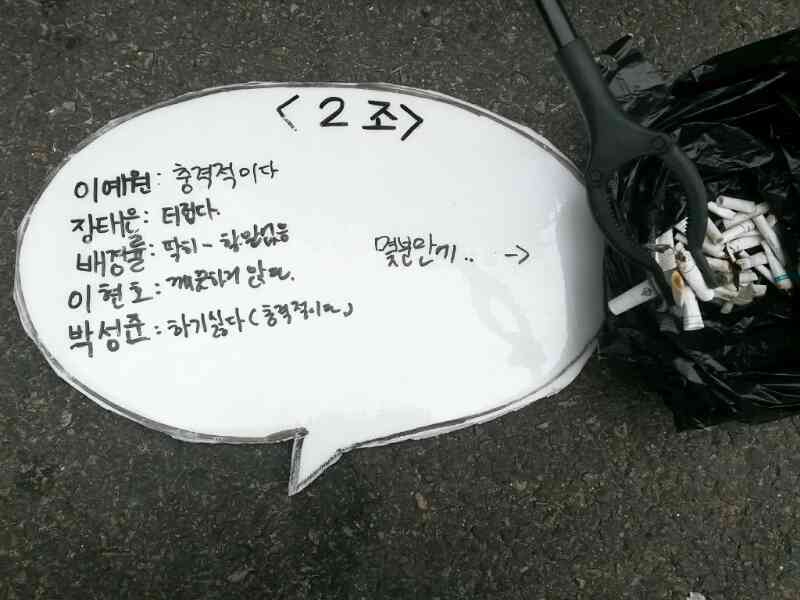 <2조>
이예원: 충격적이다
장태은: 더럽다.
배정률: 딱히-
이현호: 깨끗하게 않다.
박성준: 하기싫다(충격적이다)
몇분만에.. →